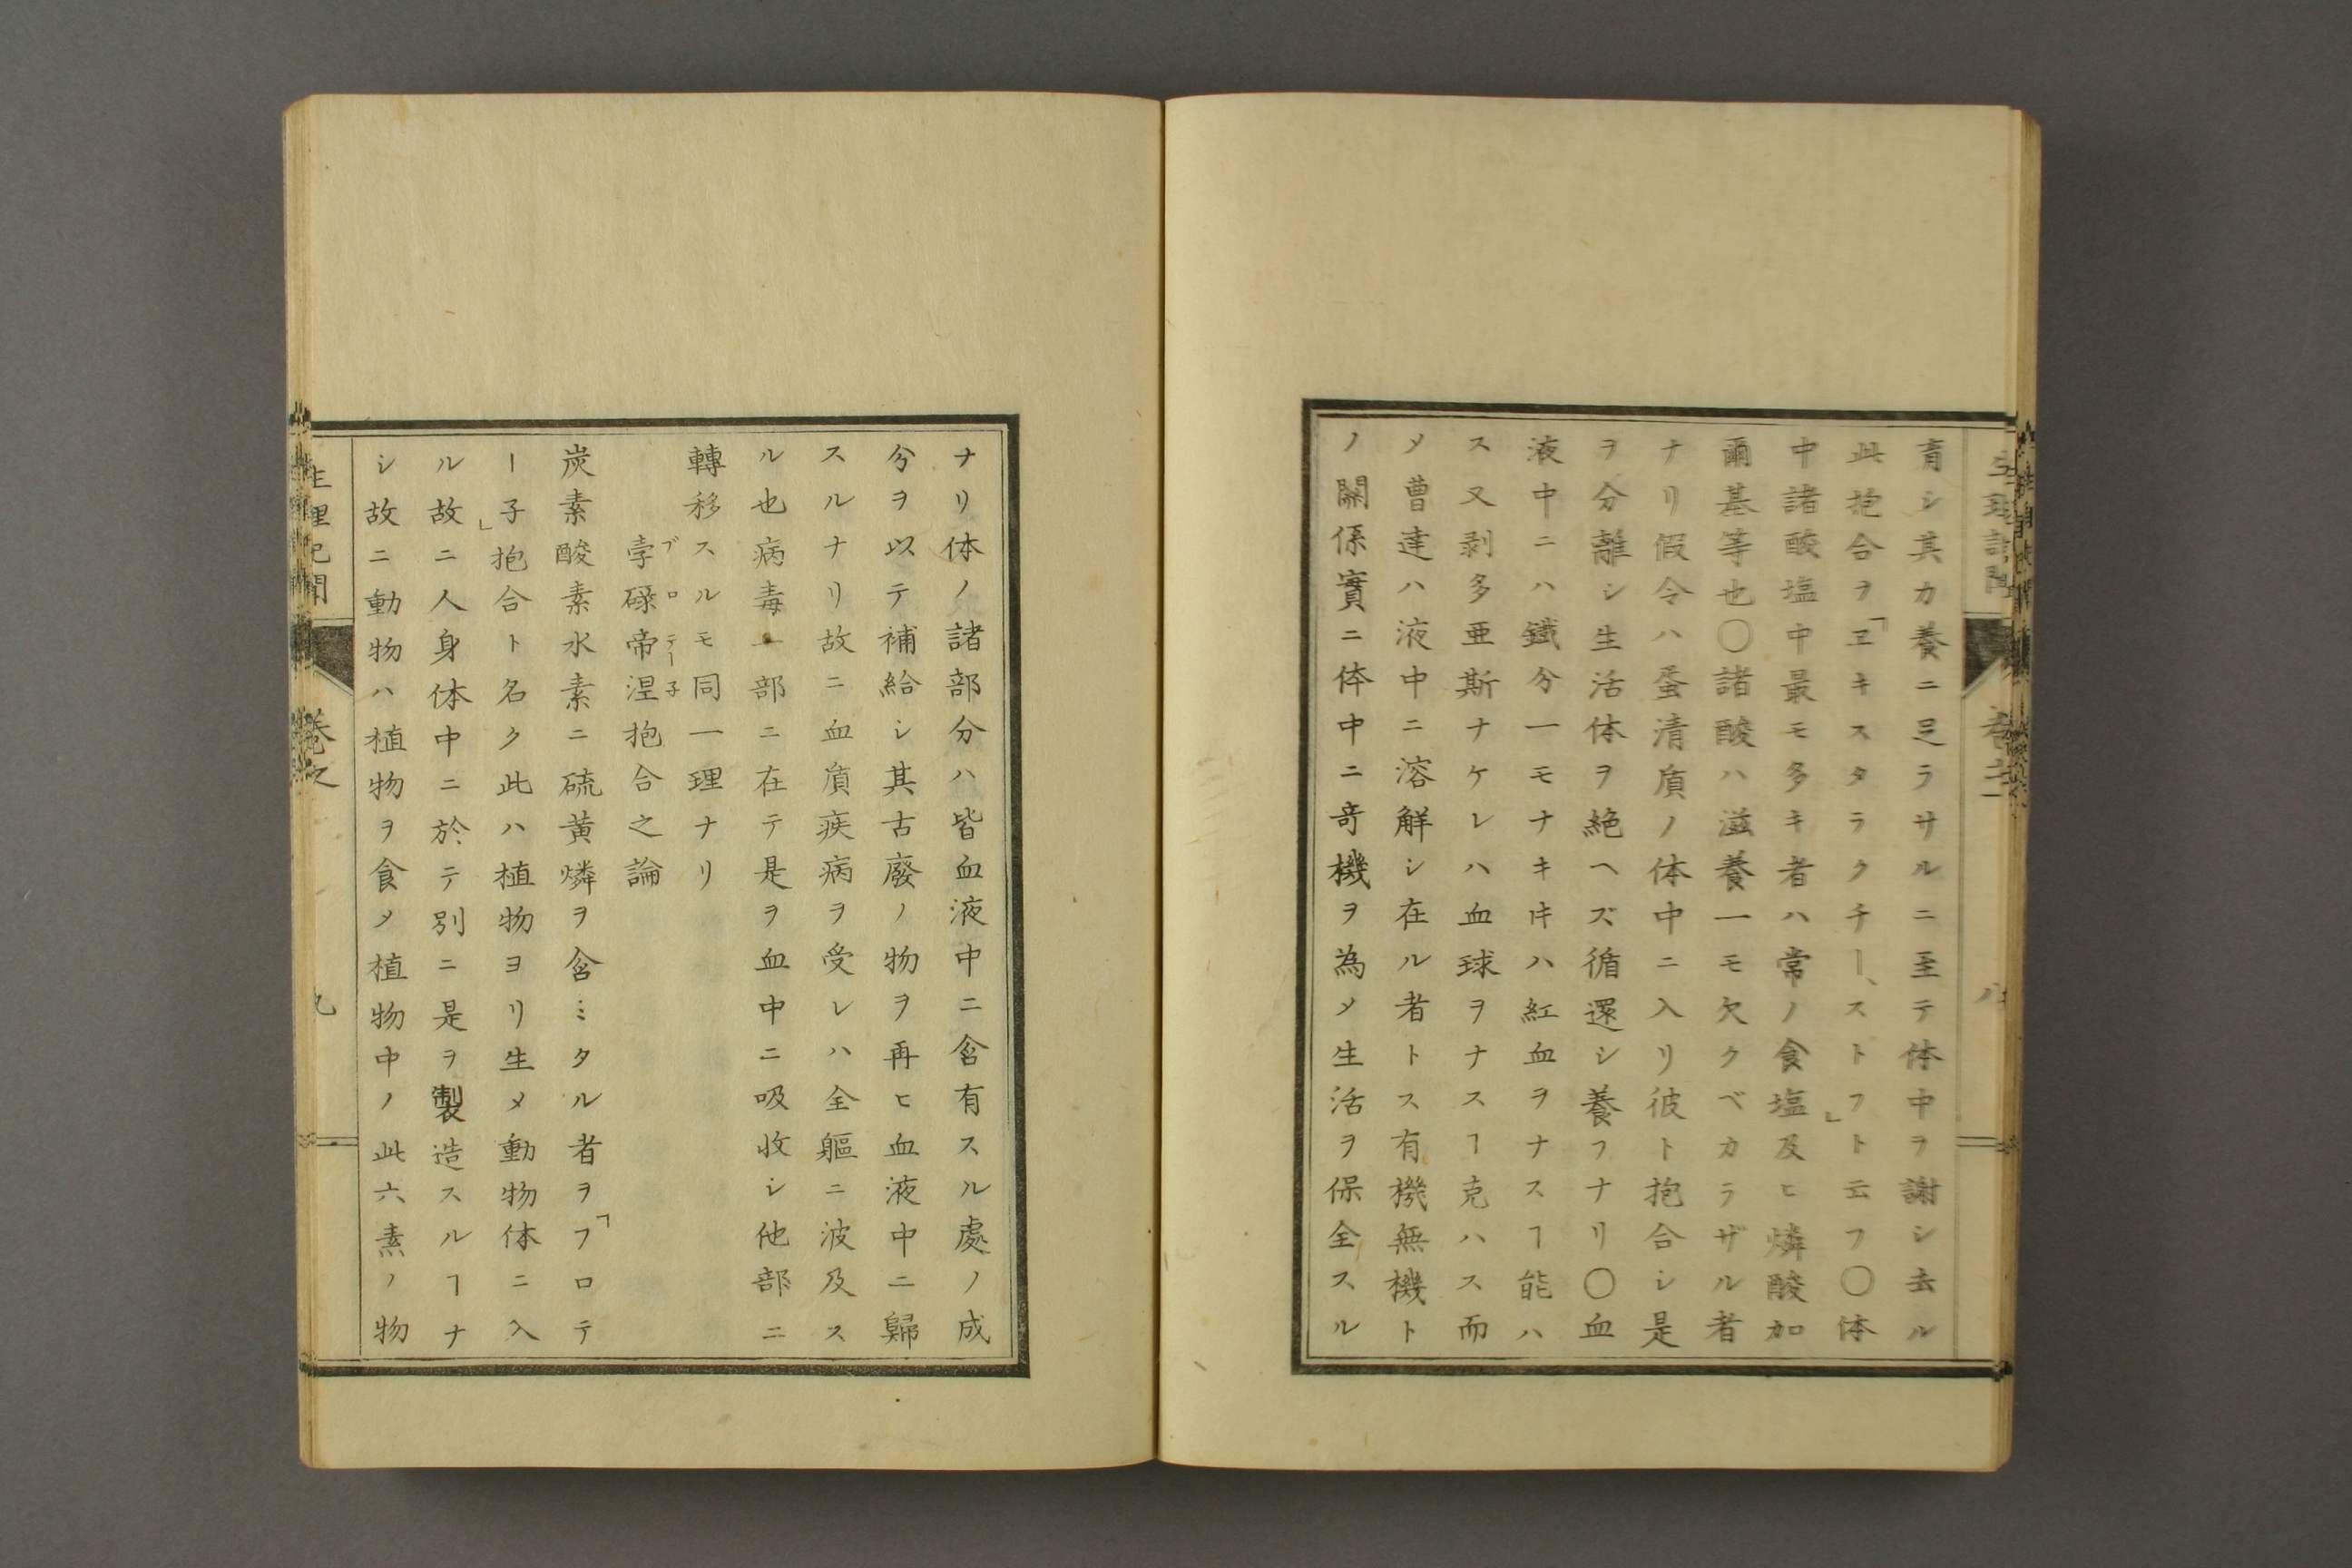 育シ其カ養ニ足ラサルニ至テ体中ヲ謝シ去ル
此抱合ヲ「ヱキスタラクチーヽストフ」ト云フ〇体
中諸酸塩中最モ多キ者ハ常ノ食塩及ヒ燐酸加
爾基等也〇諸酸ハ滋養一モ欠クベカラザル者
ナリ假令ハ蛋清質ノ体中ニ入リ彼ト抱合シ是
ヲ分離シ生活体ヲ絶ヘズ循還シ養フナリ〇血
液中ニハ鐵分一モナキ𪜈ハ紅血ヲナスヿ能ハ
ス又剥多亜斯ナケレハ血球ヲナスヿ克ハス而
メ曹達ハ液中ニ溶解シ在ル者トス有機無機ト
ノ關係實ニ体中ニ奇機ヲ為メ生活ヲ保全スル
ナリ体ノ諸部分ハ皆血液中ニ含有スル處ノ成
分ヲ以テ補給シ其古廢ノ物ヲ再ヒ血液中ニ歸
スルナリ故ニ血質疾病ヲ受レハ全軀ニ波及ス
ル也病毒一部ニ在テ是ヲ血中ニ吸收シ他部ニ
轉移スルモ同一理ナリ
孛碌帝涅抱合之論
ブロテー子
炭素酸素水素ニ硫黄燐ヲ含ミタル者ヲ「フロテ
ー子」抱合ト名ク此ハ植物ヨリ生メ動物体ニ入
ル故ニ人身体中ニ於テ別ニ是ヲ製造スルヿナ
シ故ニ動物ハ植物ヲ食メ植物中ノ此六素ノ物
生理記聞
巻之
九